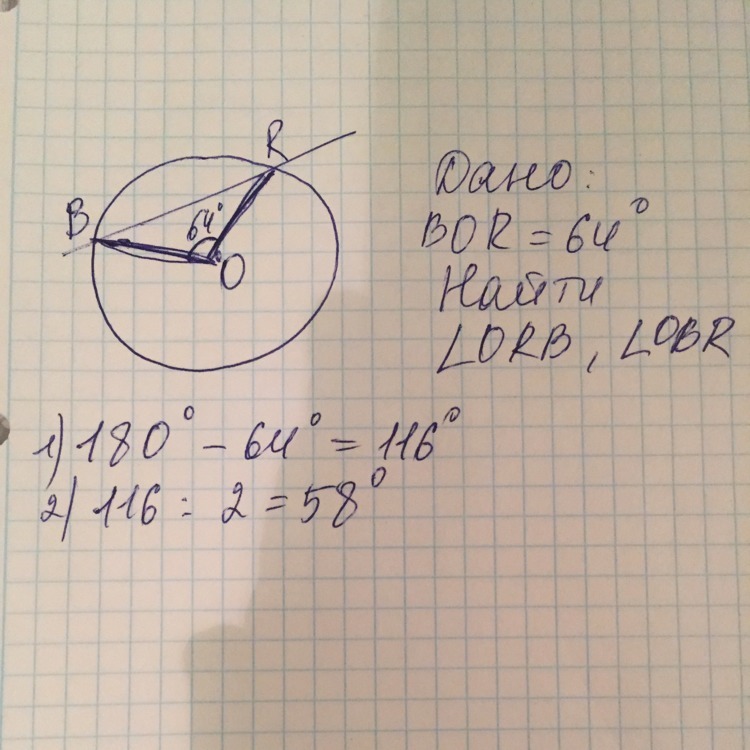 R
B
64°
O
Дано:
BOR = 64°
Найти
∠ORB, ∠OBR
1) 180° - 64° = 116°
2) 116 : 2 = 58°